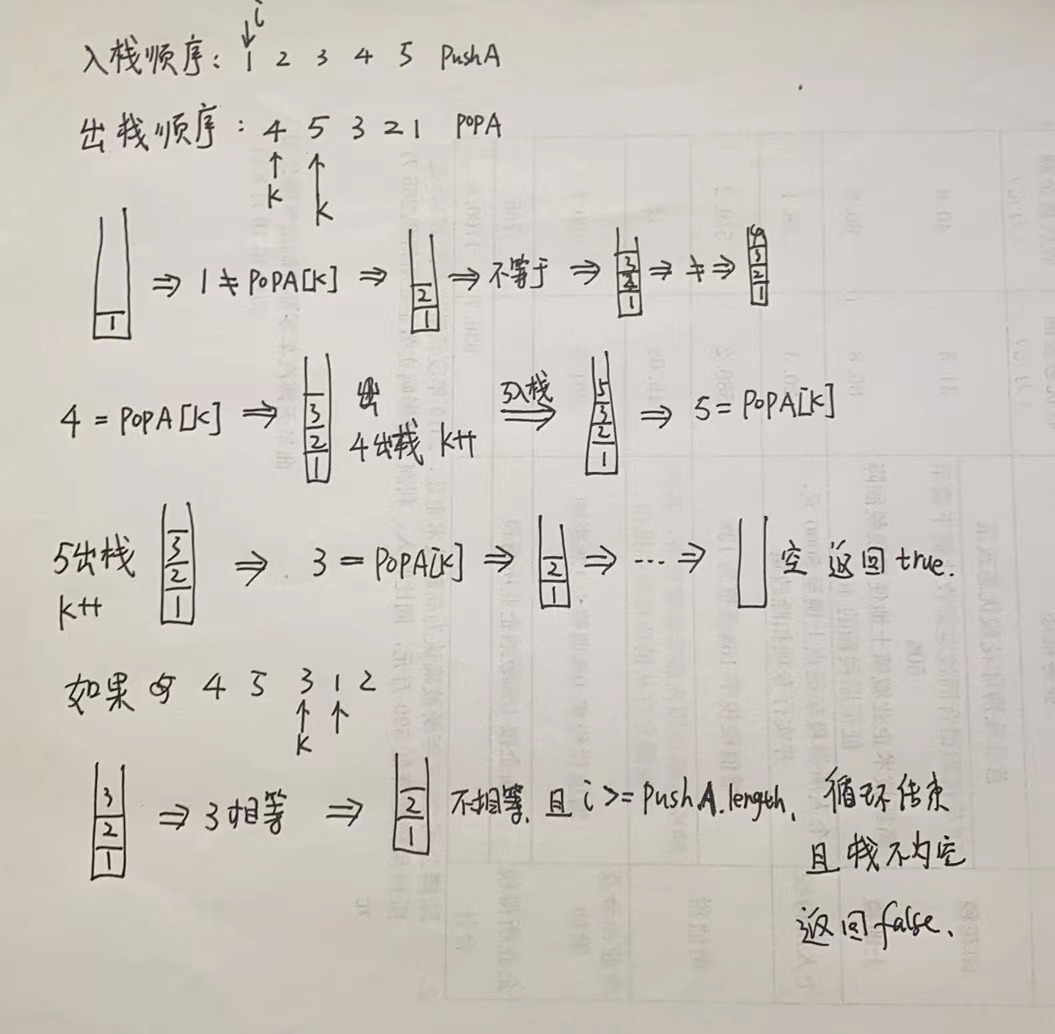 i
入栈顺序: 1 2 3 4 5 PushA
出栈顺序: 4 5 3 2 1 POPA
K K
1 ⇒ 1 ≠ POPA[K] ⇒ 2 1 ⇒ 不等于 ⇒ 3 2 1 ⇒ ≠ ⇒ 4 3 2 1
4 = POPA[K] ⇒ 3 2 1 出 5入栈 ⇒ 5 3 2 1 ⇒ 5 = POPA[K]
4出栈 K++
5出栈 3 2 1 ⇒ 3 = POPA[K] ⇒ 2 1 ⇒ ... ⇒ 空 返回 true.
K++
如果 4 5 3 1 2
K
3 2 1 ⇒ 3相等 ⇒ 2 1 不相等, 且 i >= PushA.length, 循环结束
且栈不为空
返回false.